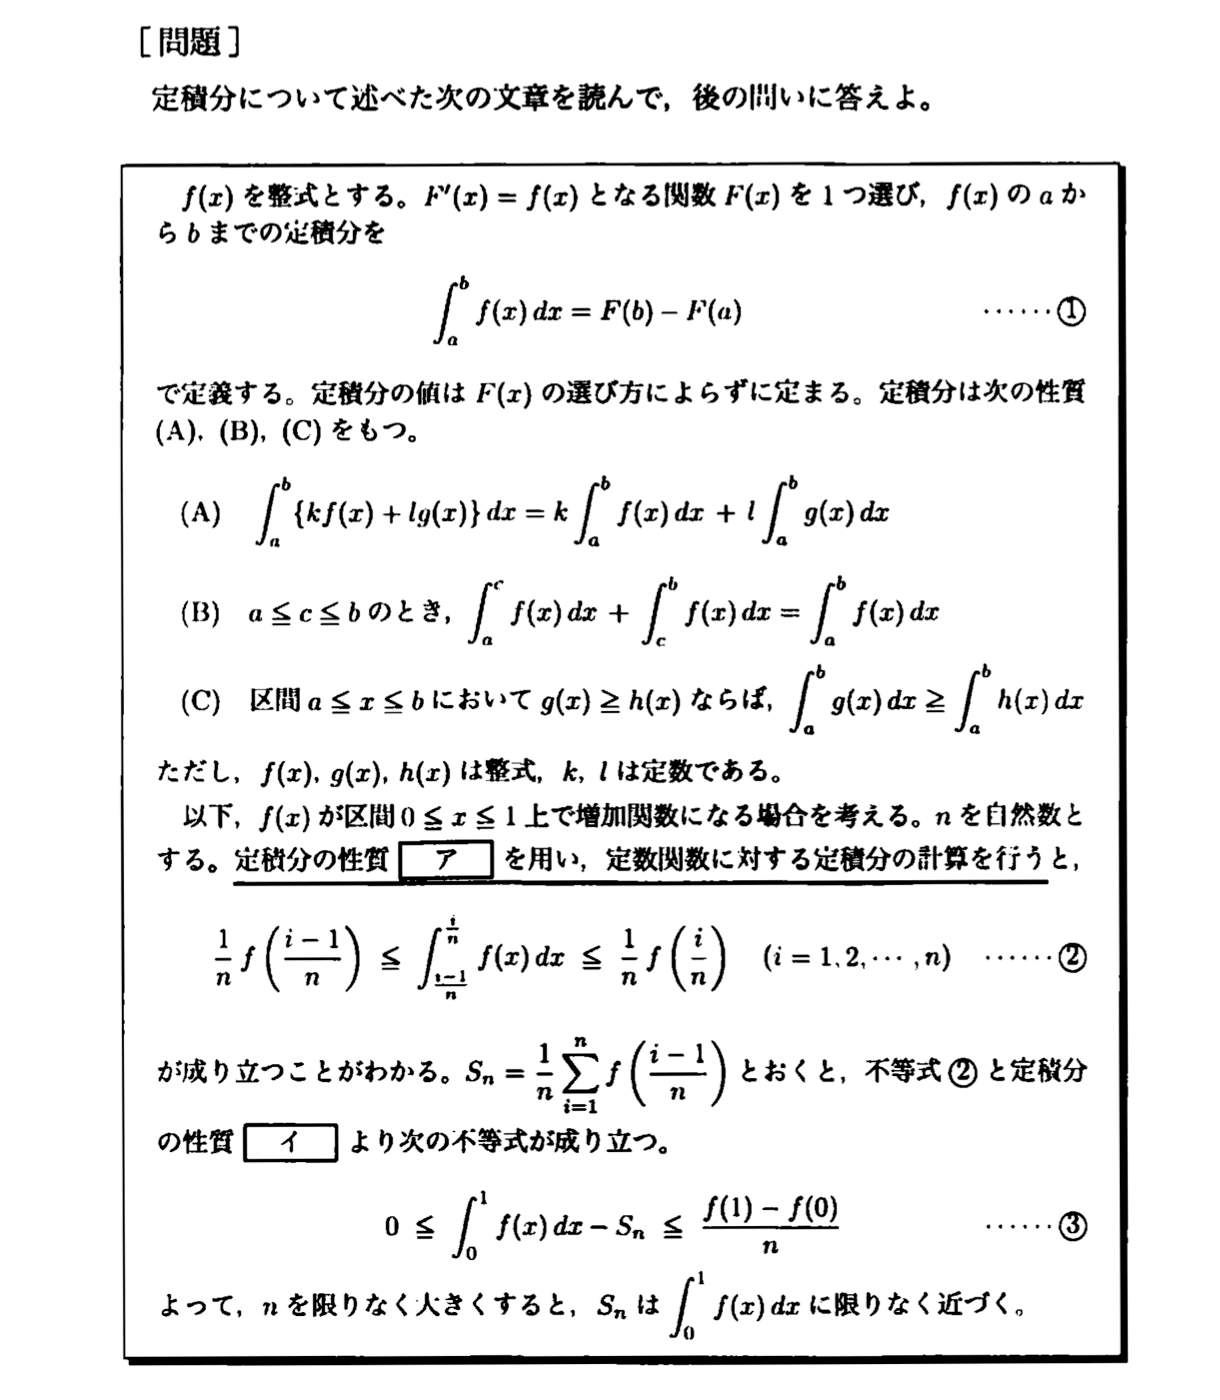 ［問題］
定積分について述べた次の文章を読んで，後の問いに答えよ。
f(x) を整式とする。F′(x) = f(x) となる関数 F(x) を 1 つ選び，f(x) の a か
ら b までの定積分を
∫_a^b f(x) dx = F(b) − F(a) ……①
で定義する。定積分の値は F(x) の選び方によらずに定まる。定積分は次の性質
(A)，(B)，(C) をもつ。
(A) ∫_a^b {kf(x) + lg(x)} dx = k ∫_a^b f(x) dx + l ∫_a^b g(x) dx
(B) a ≦ c ≦ b のとき，∫_a^c f(x) dx + ∫_c^b f(x) dx = ∫_a^b f(x) dx
(C) 区間 a ≦ x ≦ b において g(x) ≧ h(x) ならば，∫_a^b g(x) dx ≧ ∫_a^b h(x) dx
ただし，f(x)，g(x)，h(x) は整式，k，l は定数である。
以下，f(x) が区間 0 ≦ x ≦ 1 上で増加関数になる場合を考える。n を自然数と
する。定積分の性質 ア を用い，定数関数に対する定積分の計算を行うと，
1/n f((i−1)/n) ≦ ∫_{(i−1)/n}^{i/n} f(x) dx ≦ 1/n f(i/n) (i = 1, 2, ⋯, n) ……②
が成り立つことがわかる。S_n = 1/n ∑_{i=1}^n f((i−1)/n) とおくと，不等式 ② と定積分
の性質 イ より次の不等式が成り立つ。
0 ≦ ∫_0^1 f(x) dx − S_n ≦ (f(1) − f(0))/n ……③
よって，n を限りなく大きくすると，S_n は ∫_0^1 f(x) dx に限りなく近づく。